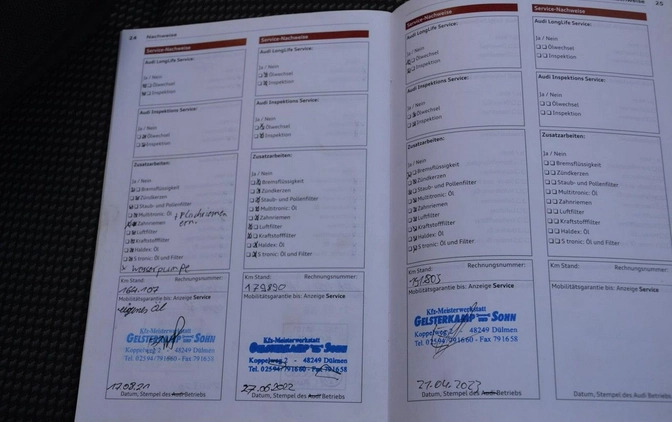 24 Nachweise
Service-Nachweise
Audi LongLife Service:
Ja / Nein
Ölwechsel
Inspektion
Audi Inspektions Service:
Ja / Nein
Ölwechsel
Inspektion
Zusatzarbeiten:
Ja / Nein
Bremsflüssigkeit
Zündkerzen
Staub- und Pollenfilter
Multitronic: Öl
Zahnriemen
Luftfilter
Kraftstofffilter
Haldex: Öl
S tronic: Öl und Filter
Wasserpumpe
Km Stand: Rechnungsnummer:
164.107
Mobilitätsgarantie bis: Anzeige Service
eigenes Öl
Kfz-Meisterwerkstatt
GELSTERKAMP und SOHN
Koppelweg 2 - 48249 Dülmen
Tel. 02594/791660 - Fax 791658
Datum, Stempel des Audi Betriebs
Service-Nachweise
Audi LongLife Service:
Ja / Nein
Ölwechsel
Inspektion
Audi Inspektions Service:
Ja / Nein
Ölwechsel
Inspektion
Zusatzarbeiten:
Ja / Nein
Bremsflüssigkeit
Zündkerzen
Staub- und Pollenfilter
Multitronic: Öl
Zahnriemen
Luftfilter
Kraftstofffilter
Haldex: Öl
S tronic: Öl und Filter
Km Stand: Rechnungsnummer:
179.890
Mobilitätsgarantie bis: Anzeige Service
Kfz-Meisterwerkstatt
GELSTERKAMP und SOHN
Koppelweg 2 - 48249 Dülmen
Tel. 02594/791660 - Fax 791658
Datum, Stempel des Audi Betriebs
Service-Nachweise
Audi LongLife Service:
Ja / Nein
Ölwechsel
Inspektion
Audi Inspektions Service:
Ja / Nein
Ölwechsel
Inspektion
Zusatzarbeiten:
Ja / Nein
Bremsflüssigkeit
Zündkerzen
Staub- und Pollenfilter
Multitronic: Öl
Zahnriemen
Luftfilter
Kraftstofffilter
Haldex: Öl
S tronic: Öl und Filter
Km Stand: Rechnungsnummer:
Mobilitätsgarantie bis: Anzeige Service
Kfz-Meisterwerkstatt
GELSTERKAMP und SOHN
Koppelweg 2 - 48249 Dülmen
Tel. 02594/791660 - Fax 791658
21.04.2023
Datum, Stempel des Audi Betriebs
25
Service-Nachweise
Audi LongLife Service:
Ja / Nein
Ölwechsel
Inspektion
Audi Inspektions Service:
Ja / Nein
Ölwechsel
Inspektion
Zusatzarbeiten:
Ja / Nein
Bremsflüssigkeit
Zündkerzen
Staub- und Pollenfilter
Multitronic: Öl
Zahnriemen
Luftfilter
Kraftstofffilter
Haldex: Öl
S tronic: Öl und Filter
Km Stand: Rechnungsnummer:
Mobilitätsgarantie bis: Anzeige Service
Datum, Stempel des Audi Betriebs